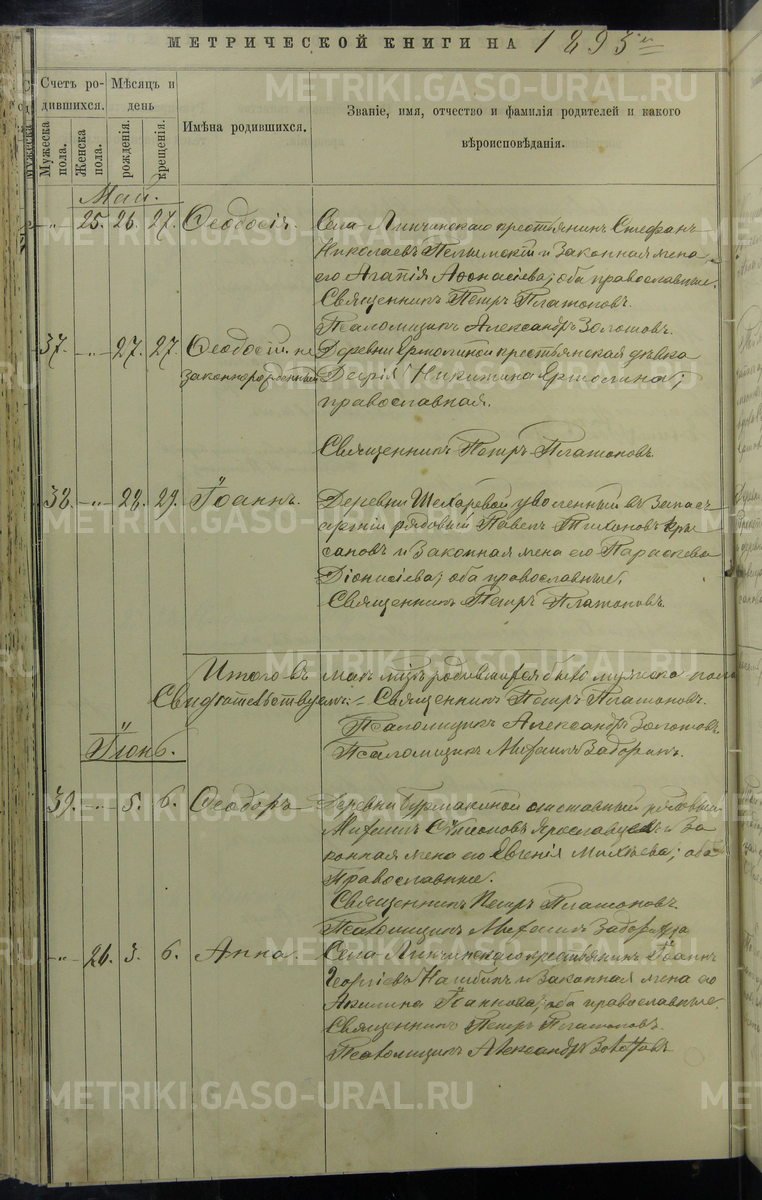 МЕТРИЧЕСКОЙ КНИГИ НА 1893 й
Счетъ родившихся.
Мѣсяцъ и день
Имѣна родившихся.
Званіе, имя, отчество и фамилія родителей и какого вѣроисповѣданія.
Мужеска пола.
Женска пола.
рожденія.
крещенія.
Май.
-„- 25. 26. 27. Ѳеодосія. Села Липчинскаго крестьянинъ Стефанъ
Николаевъ Пелымскій и законная жена
его Агапія Аѳонасіева; оба православные.
Священникъ Петръ Платоновъ.
Псаломщикъ Александръ Золотовъ.
37. -„- 27. 27. Ѳеодосій не Деревни Ермолиной крестьянская дѣвка
законнорожденный Никитина Ермолина;
православная.
Священникъ Петръ Платоновъ.
38. -„- 28. 29. Іоаннъ. Деревни уволенный въ запасъ
арміи рядовый Павелъ Тихоновъ
и законная жена его Параскева
Діонисіева; оба православные.
Священникъ Петръ Платоновъ.
Итого въ маѣ родившихся было мужеска пола
Свидѣтельствуемъ: Священникъ Петръ Платоновъ.
Псаломщикъ Александръ Золотовъ
Псаломщикъ Михаилъ Задоринъ.
Іюнь.
39. -„- 5. 6. Ѳеодоръ Деревни Бурмакиной отставный рядовый
Михаилъ Ярославцевъ и за
конная жена его Евгенія Михѣева; оба
православные.
Священникъ Петръ Платоновъ.
Псаломщикъ Михаилъ
-„- 26. 3. 6. Анна. Села Липчинскаго крестьянинъ Іоаннъ
Георгіевъ и законная жена его
Акилина Іаннова; оба православные.
Священникъ Петръ Платоновъ.
Псаломщикъ Александръ Золотовъ
METRIKI.GASO-URAL.RU